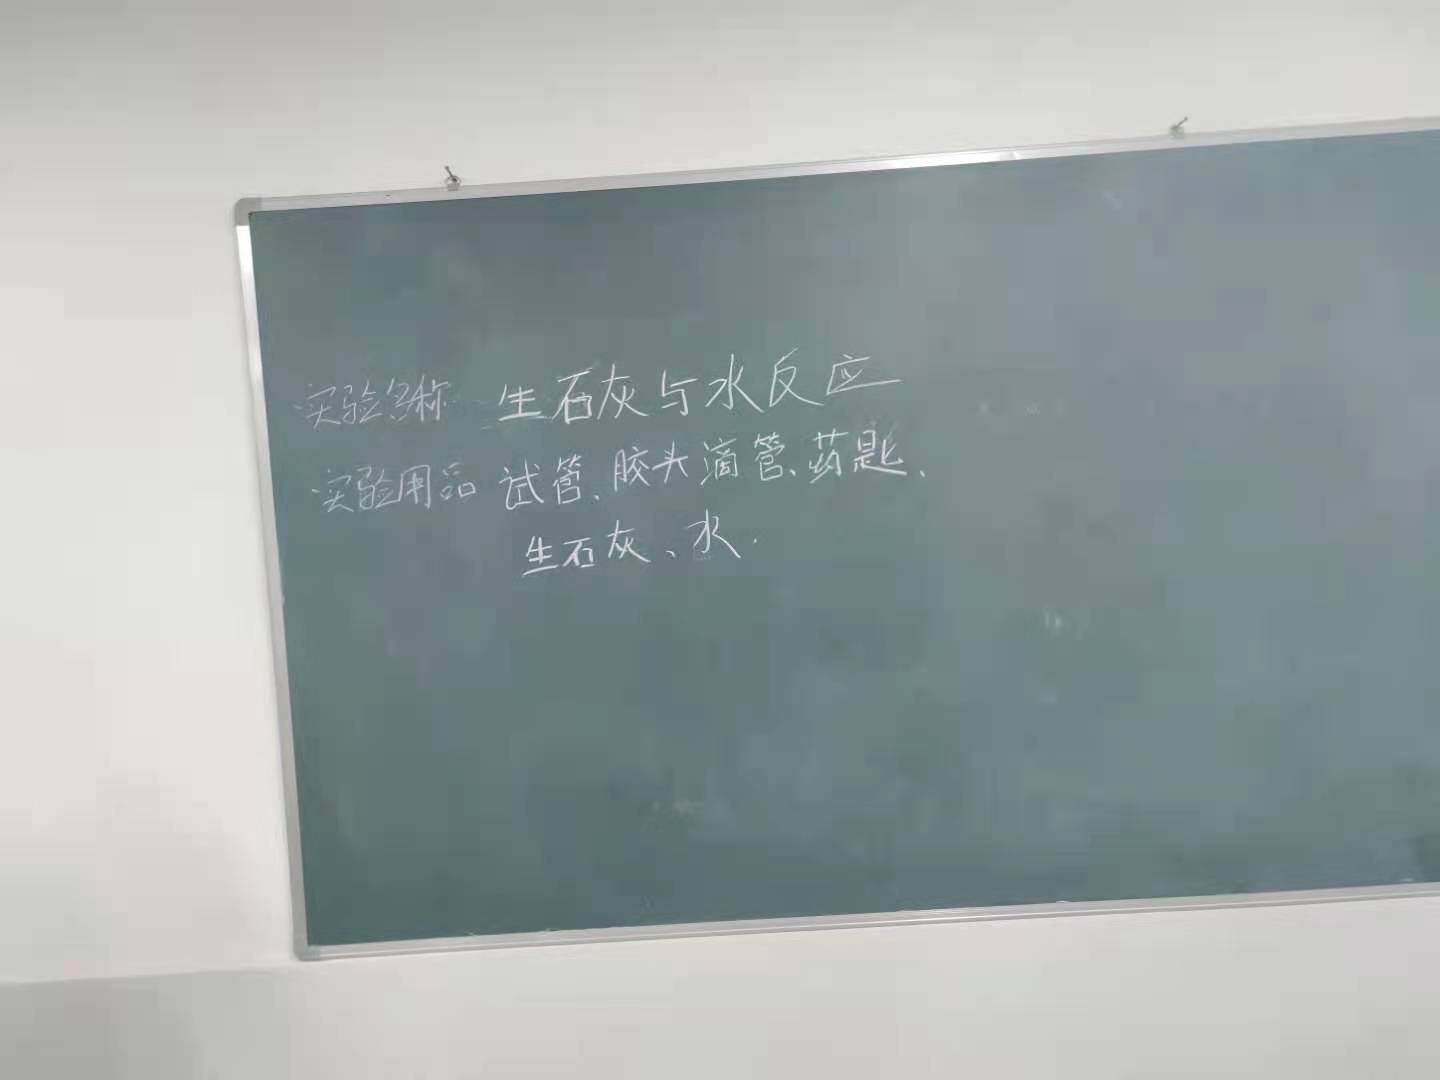 实验名称 生石灰与水反应
实验用品 试管、胶头滴管、药匙、
生石灰、水.